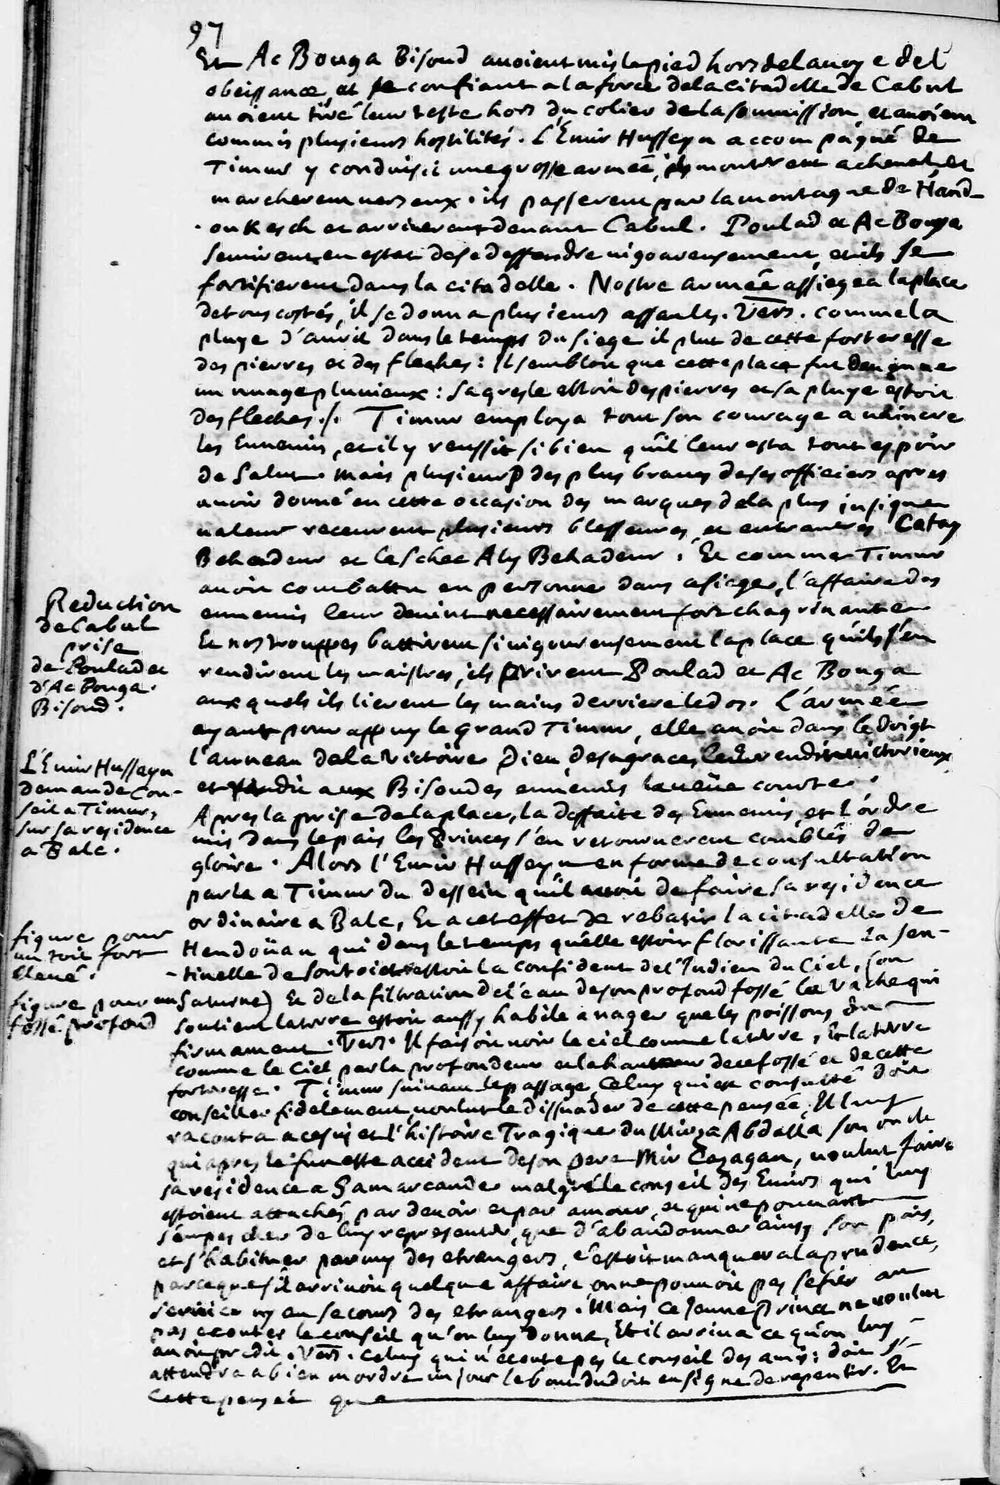 97
Et Ac Bouga Bisoud auoient mis le pied hors de la uoye de l'
obeissance, et se confiant a la force de la Citadelle de Cabul
auoient tiré leur teste hors du colier de la soumission, et auoient
commis plusieurs hostilités. L'Emir Husseyn accompagné de
Timur y conduisit une grosse armée, ils monterent a cheual et
marcherent uers eux. ils passerent par la montagne de Hand-
-ou Kesch et arriuerent deuant Cabul. Poulad et Ac Bouga
se mirent en estat de se deffendre uigoureusement, et ils se
fortifierent dans la citadelle. Nostre armée assiegea la place
de tous costés, il se donna plusieurs assaults. Vers. comme la
pluye d'auril dans le temps du siege il plut de cette forteresse
des pierres et des fleches: Il sembloit que cette place fut deuenue
un nuage pluuieux: sa gresle estoit des pierres et sa pluye estoit
des fleches./. Timur employa tout son courage a uaincre
les Ennemis, et il y reussit si bien qu'il leur osta tout espoir
de Salut. Mais plusieurs des plus braues de ses officiers apres
auoir donné en cette occasion des marques de la plus insigne
ualeur receurent plusieurs blesseures, et entrautres Catay
Behadeur et le Schec Aly Behadeur. Et comme Timur
auoit combattu en personne dans ce siege, l'affaire des
ennemis leur deuint necessairement fort chagrinante
Et nos trouppes battirent si uigoureusement la place qu'ils s'en
rendirent les maistres, ils prirent Poulad et Ac Bouga
aux quels ils lierent les mains derriere le dos. L'armée
ayant pour appuy le grand Timur, elle auoit dans le doigt
l'anneau de la Victoire Dieu de sa grace les rendit uictorieux
et rendit aux Bisoudes ennemis la ueüe courte.
Apres la prise de la place, la deffaite des Ennemis, et l'ordre
mis dans le pais les Princes s'en retournerent comblés de
gloire. Alors l'Emir Husseyn en forme de consultation
parla a Timur du dessein qu'il auoit de faire sa residence
ordinaire a Balc, Et a cet effet de rebatir la citadelle de
Hendoüan qui dans le temps qu'elle estoit florissante La sen-
-tinelle de son toict estoit la confident de l'Indien du Ciel, (ou
Saturne) Et de la filtration de l'eau de son profond fossé la Vache qui
soutient la terre estoit aussy habile a nager que les poissons du
firmament. Vers. Il faisoit uoir le ciel comme la terre, Et la terre
comme le Ciel par la profondeur et la hauteur de ce fossé et de cette
forteresse. Timur suiuant le passage, Celuy qui est consulté doit
conseiller fidelement uoulut le dissuader de cette pensée, Il luy
raconta a ce sujet l'histoire Tragique du Mirza Abdalla son oncle
qui apres le funeste accident de son pere Mir Cazagan, uoulut faire
sa residence a Samarcande malgré le conseil des Emirs qui luy
estoient attachés par deuoir et par amour, et qui ne pouuant
s'empescher de luy representer, que d'abandonner ainsy son païs,
et s'habituer parmy des etrangers, c'estoit manquer a la prudence,
parce que s'il arriuoit quelque affaire on ne pouuoit pas se fier au
seruice ny au secours des etrangers. Mais ce Jeune Prince ne uoulut
pas ecouter le conseil qu'on luy donna, Et il arriua ce qu'on luy
auoit predit. Vers. Celuy qui n'ecoute pas le conseil des amis: doit s'
attendre a bien mordre un jour le bout du doit en signe de repentir. Et
Cette pensée que
Reduction
de Cabul
prise
de Poulad et
d'Ac Bouga
Bisoud.
L'Emir Husseyn
demande Con-
seil a Timur,
sur sa residence
a Balc.
figure pour
un toit fort
eleué.
figure pour un
fossé profond